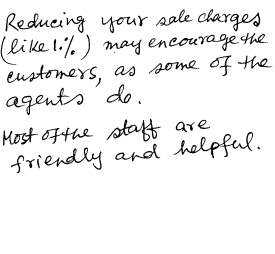 Reducing your sale charges
(like 1.%) may encourage the
customers, as some of the
agents do.
Most of the staff are
friendly and helpful.